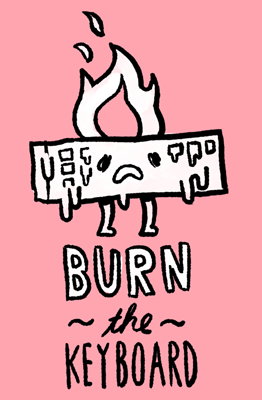 BURN
~ the ~
KEYBOARD